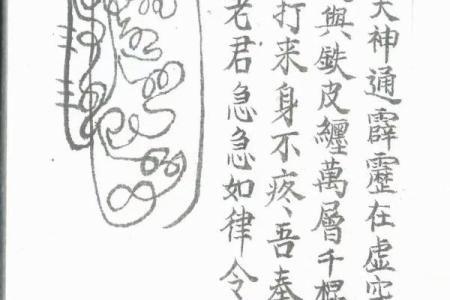 天神通霹靂在虛空
與鉄皮纏萬層千棍
打来身不疼、吾奉
老君急急如律令